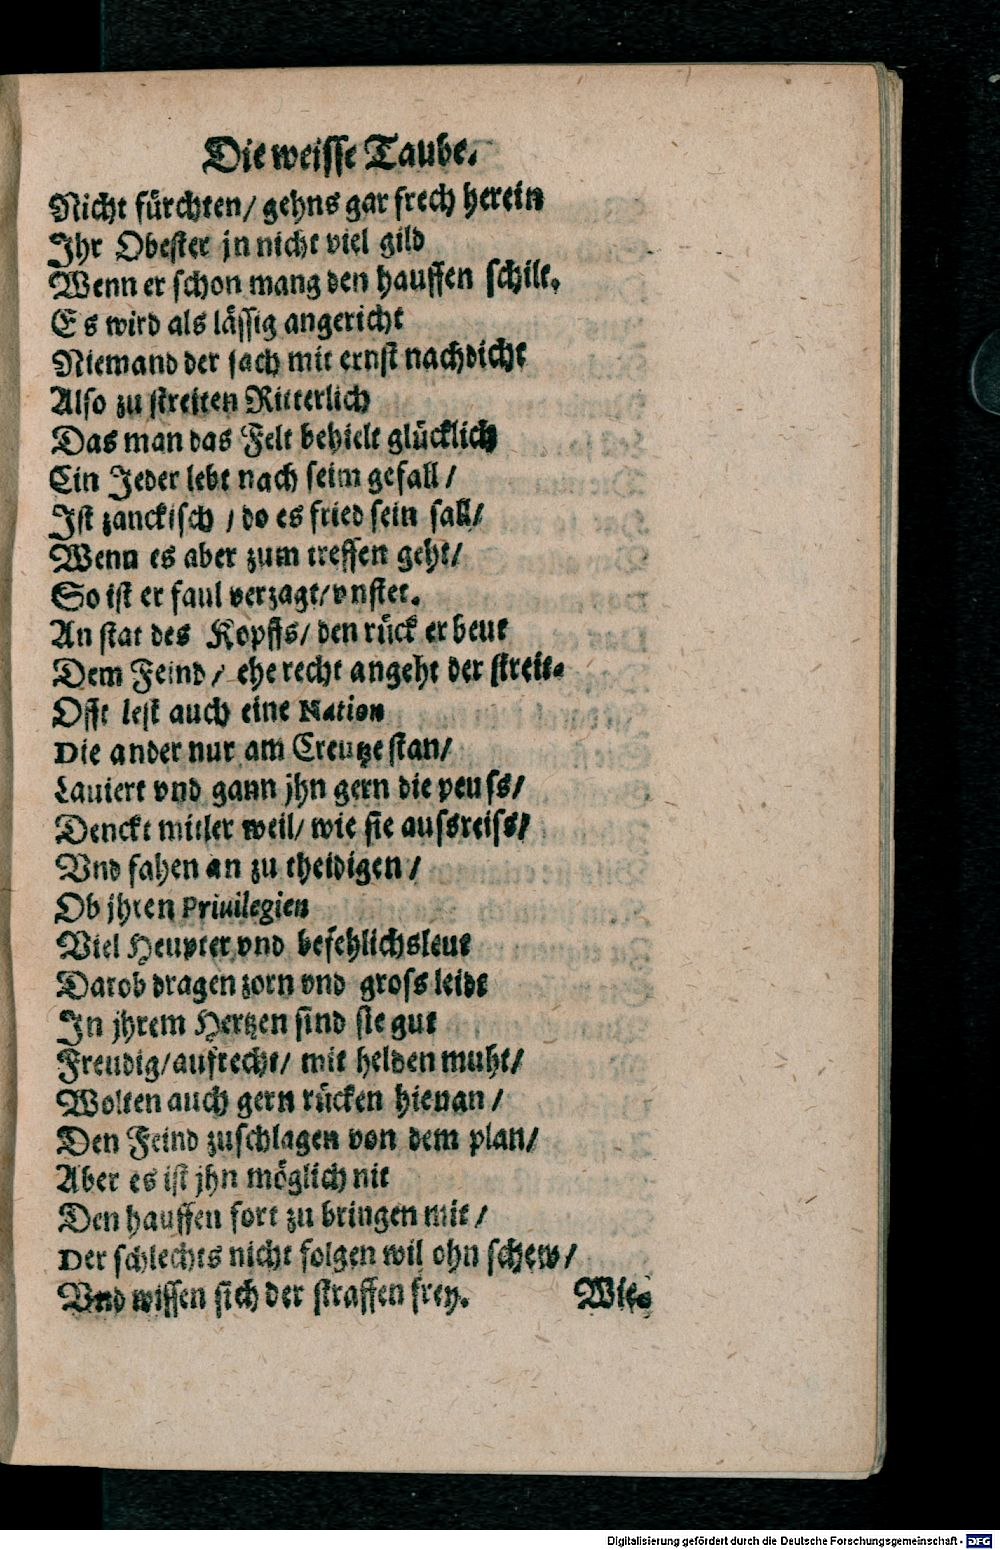 Die weisse Taube.
Nicht fürchten/ gehns gar frech herein
Ihr Obester jn nicht viel gild
Wenn er schon mang den hauffen schilt.
Es wird als lässig angericht
Niemand der sach mit ernst nachdicht
Also zu streiten Ritterlich
Das man das Felt behielt glücklich
Ein Jeder lebt nach seim gefall/
Ist zanckisch / do es fried sein sall/
Wenn es aber zum treffen geht/
So ist er faul verzagt/vnstet.
An stat des Kopffs/ den rück er beut
Dem Feind/ ehe recht angeht der streit.
Offt lest auch eine Nation
Die ander nur am Creutze stan/
Lauiert vnd gann jhn gern die peuss/
Denckt mitler weil/ wie sie aussreiss/
Vnd fahen an zu theidigen/
Ob jhren Priuilegien
Viel Heupter vnd befehlichsleut
Darob dragen zorn vnd gross leidt
In jhrem Hertzen sind sie gut
Freudig/aufrecht/ mit helden muht/
Wolten auch gern rücken hienan/
Den Feind zuschlagen von dem plan/
Aber es ist jhn möglich nit
Den hauffen fort zu bringen mit/
Der schlechts nicht folgen wil ohn schew/
Vnd wissen sich der straffen frey. Wie.
Digitalisierung gefördert durch die Deutsche Forschungsgemeinschaft - DFG